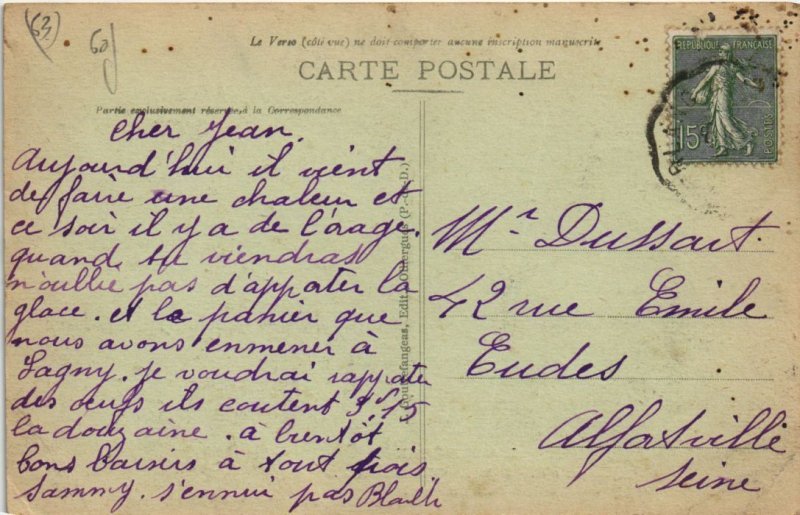 63
60
Le Verso (côté vue) ne doit comporter aucune inscription manuscrite
CARTE POSTALE
Partie exclusivement réservée à la Correspondance
RÉPUBLIQUE FRANÇAISE
15c
POSTES
cher Jean.
Aujourd'hui il vient
de faire une chaleur et
ce soir il y a de l'orage.
quand tu viendras
n'oublie pas d'appater la
glace. et le panier que
nous avons enmener à
Lagny. je voudrai rappater
des œufs ils coutent 3f,15
la douzaine. à bientôt
bons baisers à tout trois
Sammy. s'ennui pas
Mr Dussart.
42 rue Emile
Eudes
Alfortville
Seine
Édit. (P.-d.-D.)